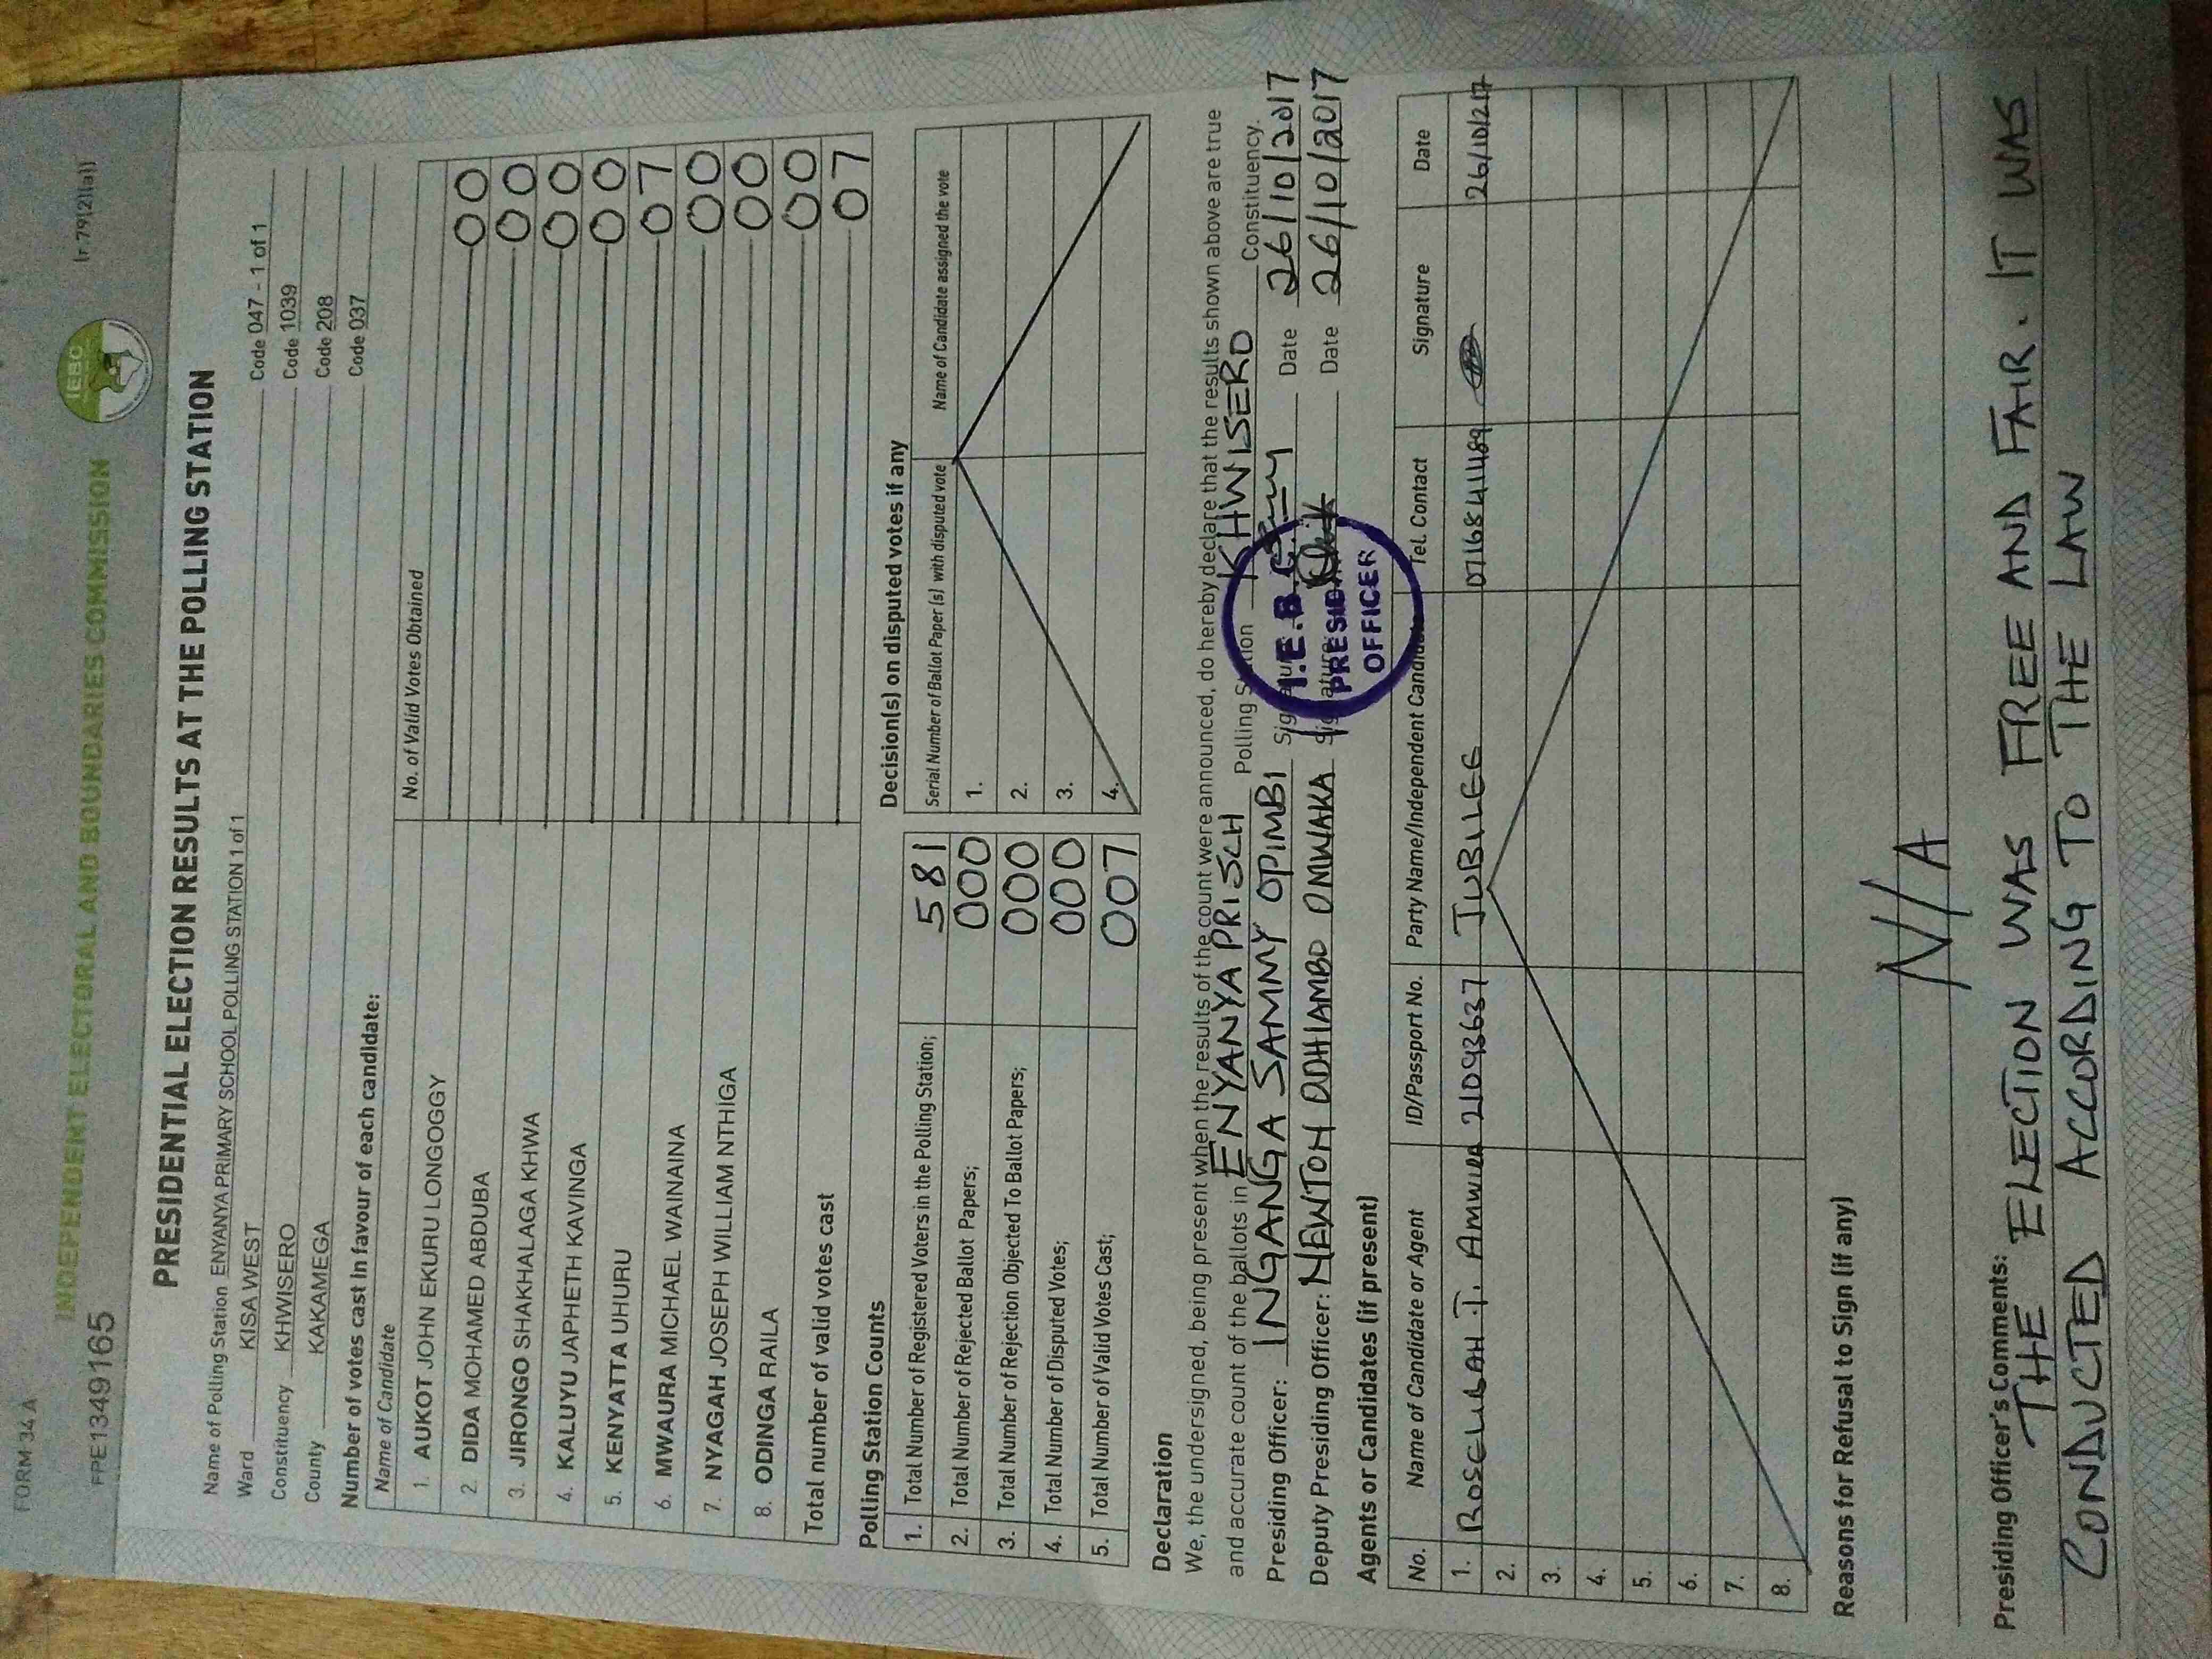 FORM 34 A
(r.79(2)(a))
INDEPENDENT ELECTORAL AND BOUNDARIES COMMISSION
IEBC
FPE1349165
PRESIDENTIAL ELECTION RESULTS AT THE POLLING STATION
Name of Polling Station ENYANYA PRIMARY SCHOOL POLLING STATION 1 of 1 Code 047 - 1 of 1
Ward KISA WEST Code 1039
Constituency KHWISERO Code 208
County KAKAMEGA Code 037
Number of votes cast in favour of each candidate:
Name of Candidate No. of Valid Votes Obtained
1. AUKOT JOHN EKURU LONGOGGY 00
2. DIDA MOHAMED ABDUBA 00
3. JIRONGO SHAKHALAGA KHWA 00
4. KALUYU JAPHETH KAVINGA 00
5. KENYATTA UHURU 07
6. MWAURA MICHAEL WAINAINA 00
7. NYAGAH JOSEPH WILLIAM NTHIGA 00
8. ODINGA RAILA 00
Total number of valid votes cast 07
Polling Station Counts
1. Total Number of Registered Voters in the Polling Station; 581
2. Total Number of Rejected Ballot Papers; 000
3. Total Number of Rejection Objected To Ballot Papers; 000
4. Total Number of Disputed Votes; 000
5. Total Number of Valid Votes Cast; 007
Decision(s) on disputed votes if any
Serial Number of Ballot Paper (s) with disputed vote Name of Candidate assigned the vote
1.
2.
3.
4.
Declaration
We, the undersigned, being present when the results of the count were announced, do hereby declare that the results shown above are true
and accurate count of the ballots in ENYANYA PRI SCH Polling Station KHWISERO Constituency.
Presiding Officer: INGANGA SAMMY OPIMBI Signature Date 26/10/2017
Deputy Presiding Officer: NEWTON ODHIAMBO OMWAKA Signature Date 26/10/2017
I.E.B.C
PRESIDING
OFFICER
Agents or Candidates (if present)
No. Name of Candidate or Agent ID/Passport No. Party Name/Independent Candidate Tel. Contact Signature Date
1. 21093637 JUBILEE 0716841489
2.
3.
4.
5.
6.
7.
8.
Reasons for Refusal to Sign (if any)
N/A
Presiding Officer's Comments:
THE ELECTION WAS FREE AND FAIR. IT WAS
CONDUCTED ACCORDING TO THE LAW